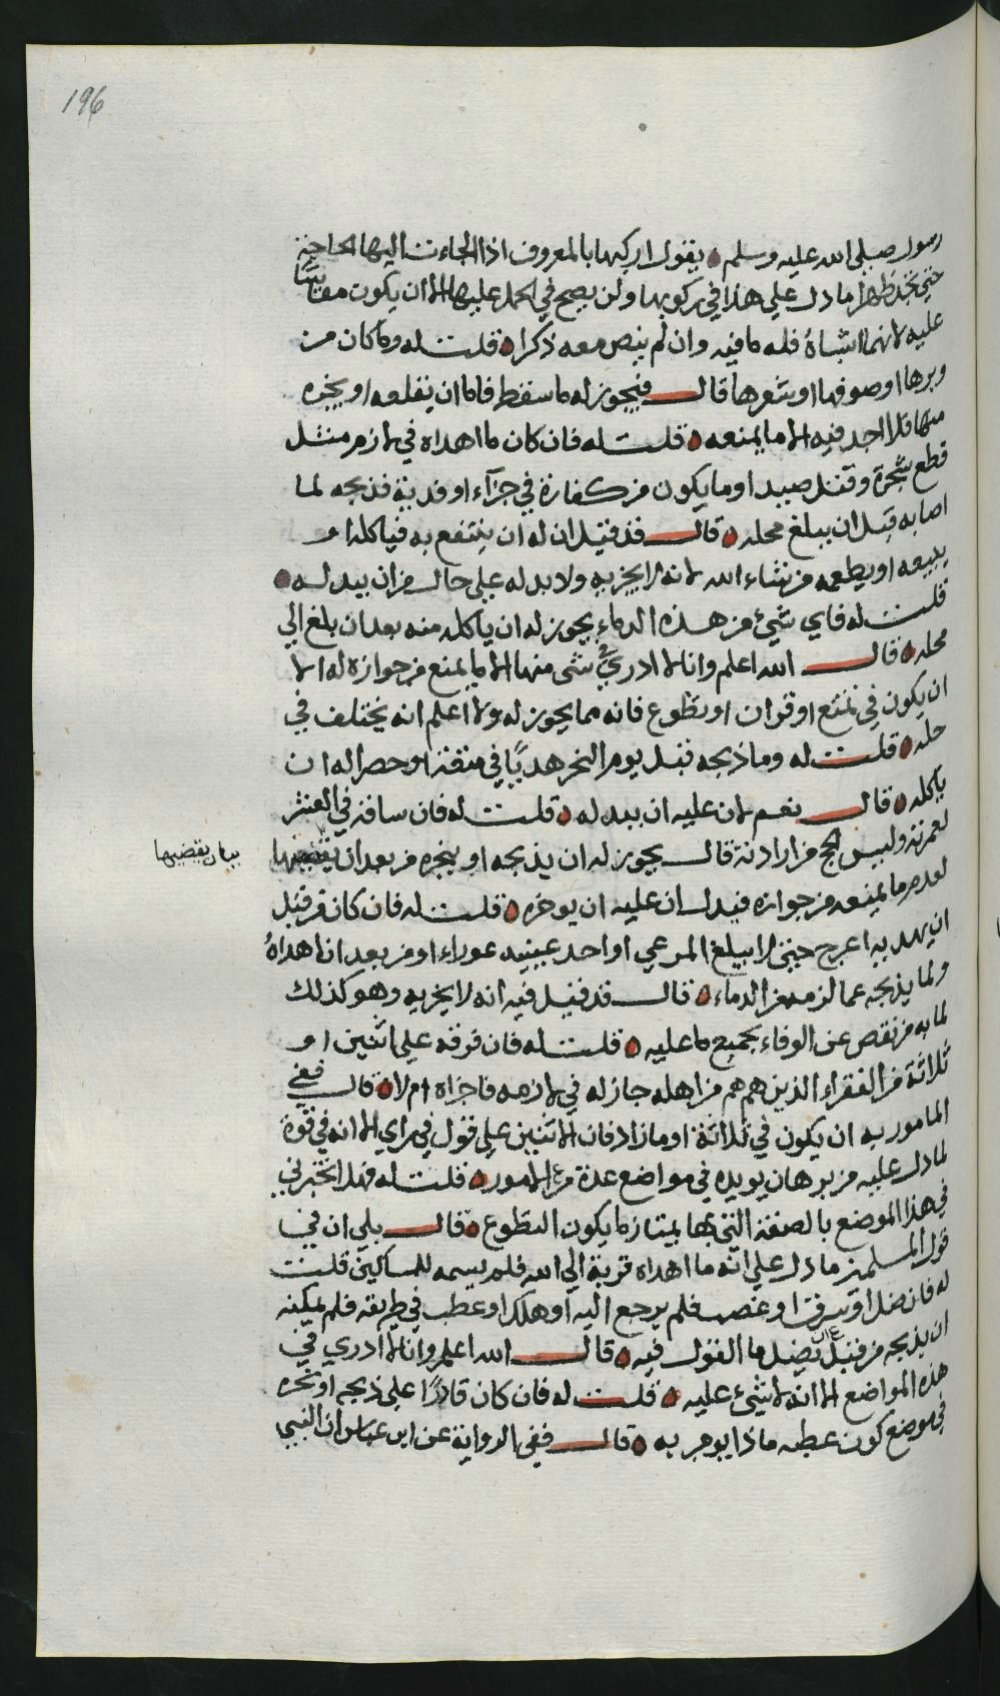 196
رسول صلى الله عليه وسلم يقول اركبها بالمعروف اذا الجاءت اليها الحاجة
حتى تجد ظهرا ما دل على هذا في ركوبها ولن يصح في الحمل عليها الا ان يكون مقايسا
عليه لانهما اشباه فله ما فيه وان لم ينص معه ذكرا قلت له وما كان من
وبرها او صوفها او شعرها قال فيجوز له ما سقط فاما ان يقلعه او يجزه
منها فلا اجد فيه الا ما يمنعه قلت له فان كان ما اهداه في لازم مثل
قطع شجرة وقتل صيد او ما يكون من كفارة في جزآء او فدية فذبحه لما
اصابه قبل ان يبلغ محله قال فقد قيل ان له ان ينتفع به فياكله او
يبيعه او يطعمه من شاء الله لانه لا يجزيه ولا بد له على حال من ان يبدله
قلت له فاي شيء من هذه الدماء يجوز له ان ياكل منه بعد ان بلغ الى
محله قال الله اعلم وانا لا ادري في شى منها الا ما يمنع من جوازه له الا
ان يكون في تمتع او قران او تطوع فانه مما يجوز له ولا اعلم انه يختلف في
حله قلت له وما ذبحه قبل يوم النحر هديًا في متعة او حصر اله ان
ياكله قال نعم لان عليه ان يبدله قلت له فان ساقه في العشر
لعمرته وليس الحج من ارادته قال يجوز له ان يذبحه او ينحره من بعد ان يقضيها
بيان يقضيها
لعدم ما يمنعه من جوازه فيدل ان عليه ان يوخره قلت له فان كان من قبل
ان يهديه اعرج حتى لا يبلغ المرعى او احد عينيه عوراء او من بعد ان اهداهُ
ولما يذبحه عما لزمه من الدماء قال قد قيل فيه انه لا يجزيه وهو كذلك
لما به من نقص عن الوفاء بجميع ما عليه قلت له فان فرقه على اثنين او
ثلاثة من الفقراء الذين هم هم من اهله جاز له في لازمه فاجزاه ام لا قال ففي
المامور به ان يكون في ثلاثة او ما زاد فان الاثنين على قول في راي الا انه في قوة
لما دل عليه من برهان يويده في مواضع عدة من الامور قلت له فهلا تخبرني
في هذا الموضع بالصفة التي بها يمتاز ما يكون التطوع قال بلى ان في
قول المسلمين ما دل على انه ما اهداه قربة الى الله فلم يسمه للمساكين قلت
له فان ضل او سرق او غصب فلم يرجع اليه او هلك او عطب في طريقه فلم يمكنه
ان يذبحه من قبل ان يصل ما القول فيه قال الله اعلم وانا لا ادري في
هذه المواضع الا انه لا شيء عليه قلت له فان كان قادرًا على ذبحه او نحره
في موضع كون عطبه ماذا يومر به قال ففي الرواية عن ابن عباس ان النبي